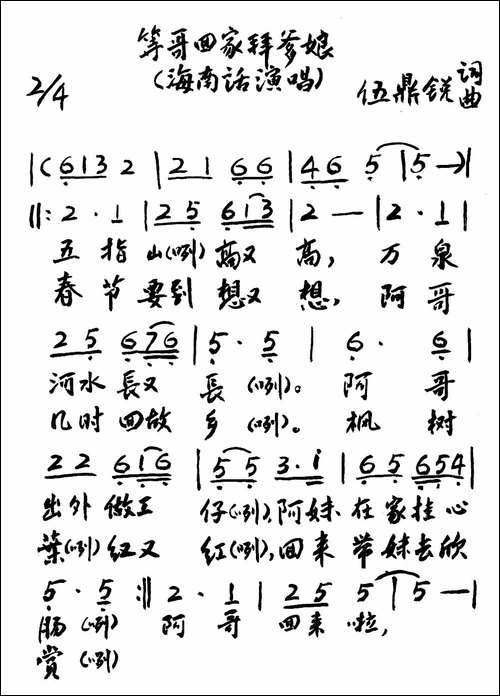 等哥回家拜爹娘
(海南话演唱)
2/4 伍鼎锐 词曲
|(613 2 |21 66 |46 5 |5 —)|
‖: 2 · 1 |25 613 |2 — |2 · 1 |
五指山(咧)高又高, 万泉
春节要到想又想, 阿哥
25 676 |5 · 5 | 6 · 6 |
河水長又長(咧)。 阿哥
几时回故乡(咧)。 枫树
22 616 |55 3·1 |65 654|
出外做工仔(咧),阿妹在家挂心
葉(咧)红又红(咧),回来带妹去欣
5 · 5 :‖ 2 · 1 | 25 5 |5 —|
肠(咧) 阿哥回来啦,
赏(咧)